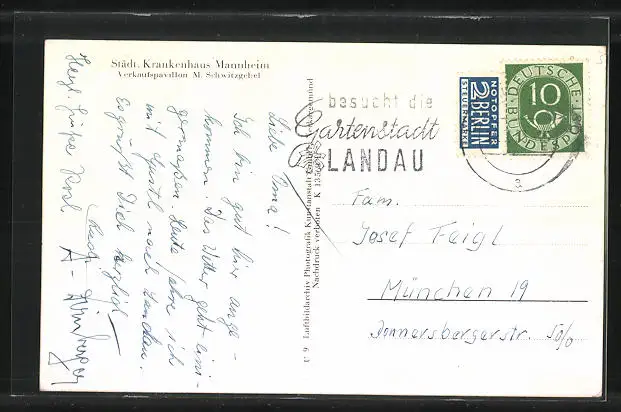 Städt. Krankenhaus Mannheim
Verkaufspavillon M. Schwitzgebel
Liebe Oma!
Ich bin gut hier ange-
kommen. Das Wetter geht eini-
germaßen. Heute fahre ich
mit nach Landau.
Es grüßt Dich herzlich
Herzl. Grüße
9 Luftbildarchiv Photografik Kunstanstalt
Nachdruck verboten K 135
besucht die
Gartenstadt
LANDAU
NOTOPFER
2 BERLIN
STEUERMARKE
DEUTSCHE
BUNDESPOST
10
Fam.
Josef Feigl
München 19
Donnersbergerstr. 50/0